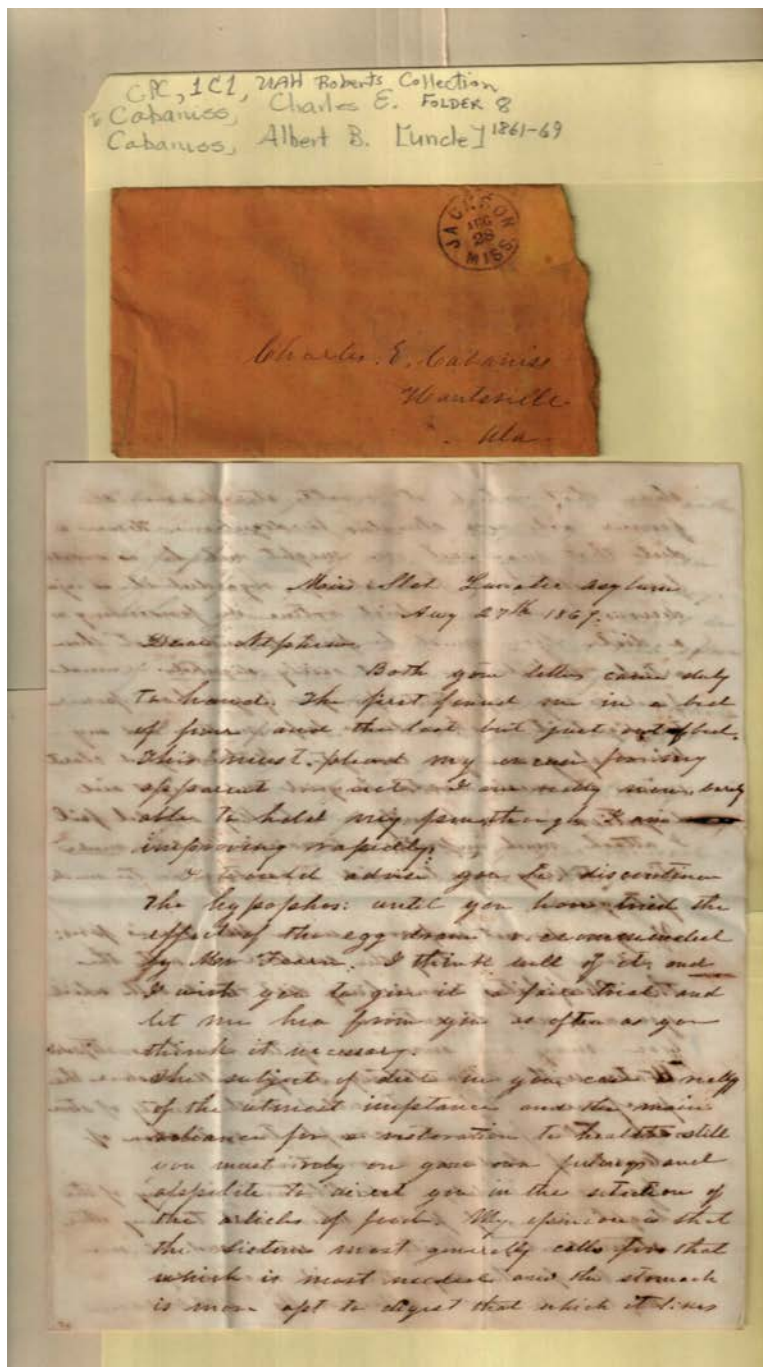 CPC, 1C1, UAH Roberts Collection
Cabaniss, Charles E. FOLDER 8
Cabaniss, Albert B. [uncle] 1861-69
JACKSON
AUG
28
MISS
Charles. E. Cabaniss
Huntsville
Ala
Miss Stat Lunatic Asylum
Aug 27th 1867.
Dear Nephew
Both your letters came duly
to hand. The first found me in a bed
of fever and the last but just out of bed.
This must plead my excuse for my
apparent I am really now barely
able to hold my pen, though I am
improving rapidly.
I would advise you to discontinue
the hypophos: until you have tried the
effects of the egg recommended
by Mrs Fearn. I think well of it, and
I wish you to give it a fair trial and
let me hea from you as often as you
think it necessary.
The subject of diet in your case is really
of the utmost importance and the main
reliance for a restoration to health still
you must rely on your own feelings and
appetite to direct you in the selection of
the articles of food. My opinion is that
the sistem most generally calls for that
which is most needed and the stomach
is more apt to digest that which it likes